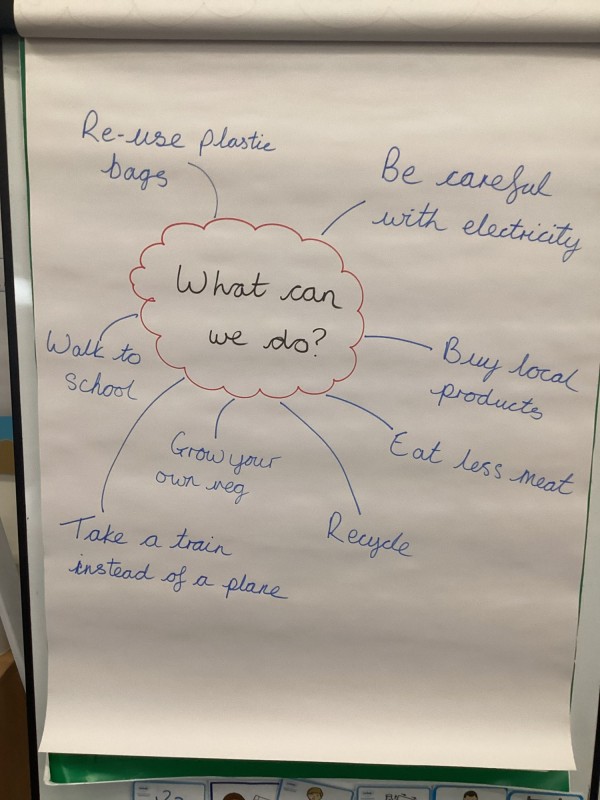 Re-use plastic
bags
Be careful
with electricity
What can
we do?
Walk to
school
Buy local
products
Eat less meat
Grow your
own veg
Recycle
Take a train
instead of a plane